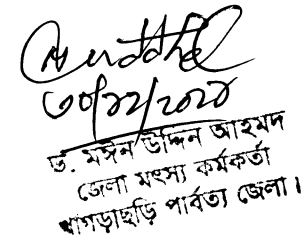 ৩০/১২/২০২৪
ড. মঈন উদ্দিন আহমদ
জেলা মৎস্য কর্মকর্তা
খাগড়াছড়ি পার্বত্য জেলা।